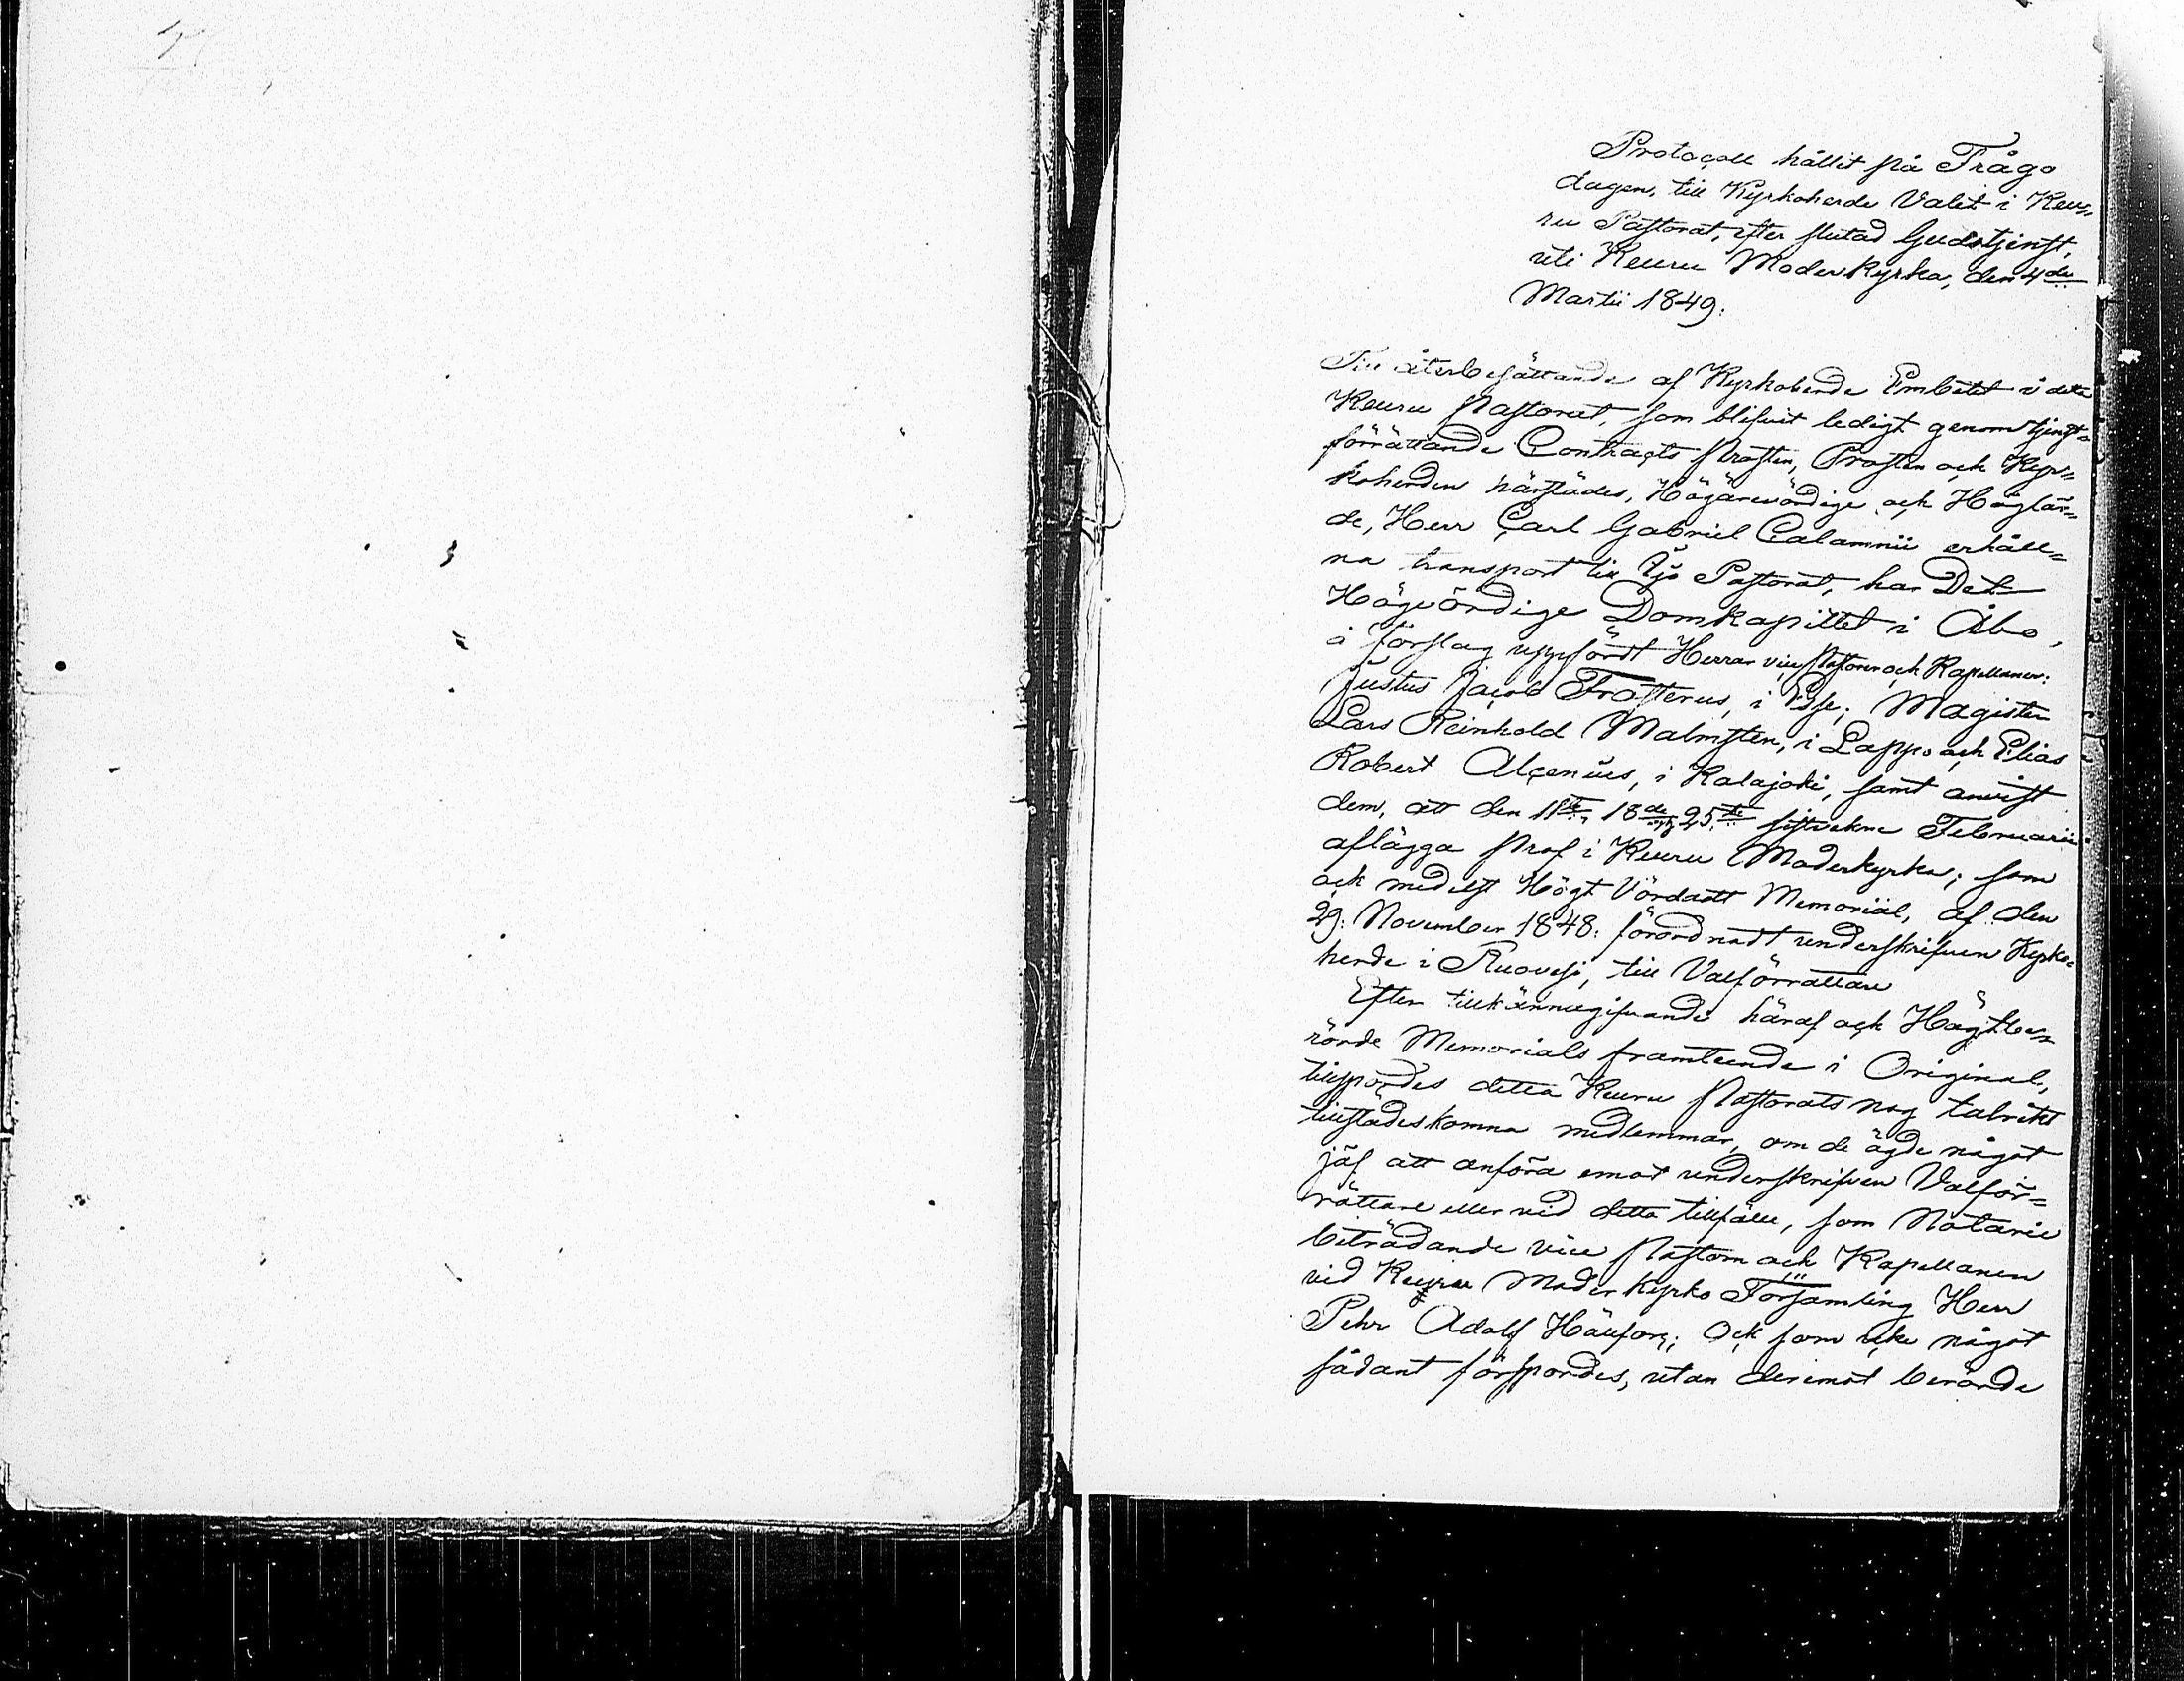 Protocoll hållit på Frågo
dagen, till Kyrkoherde Valet i Keu=
ru Pastorat, efter slutad Gudstjenst,
uti Keuru Moderkyrka, den 4de
Martii 1849.
Till återbesättande af Kyrkoherde Embetet i detta
Keuru Pastorat, som blifvit ledigt genom tjenst=
förrättande Contracts Prosten, Prosten och Kyr=
koherden härstädes, Högärevördige och Höglär=
de, Herr Carl Gabriel Calamnii erhåll=
na transport till Ijo Pastorat, har Det
Högvördige Domkapitlet i Åbo,
å förslag uppfördt Herrar vice Pastorer och Kapellaner:
Justus Jacob Frosterus, i Esse; Magister
Lars Reinhold Malmsten, i Lappo och Elias
Robert Alcenius, i Kalajoki, samt anvist
dem, att den 11te, 18de och 25te sistvekne Februarii
aflägga Prof i Keuru Moderkyrka; som
ock medelst Högt Vördadt Memorial, af den
29: November 1848: förordnadt underskrifven Kyrko=
herde i Ruovesi, till Valförrättare
Efter tillkännagifvande häraf och Högtbe=
rörde Memorials framteende i Original,
tillspordes detta Keuru Pastorats nog talrikt
tillstädeskomna medlemmar, om de ägde något
jäf att anföra emot underskrifven Valför=
rättare eller vid detta tillfälle, som Notarie
biträdande vice Pastorn och Kapellanen
vid Keuru Moderkyrko Församling Herr
Pehr Adolf Hällfors; Och som icke något
sådant förspordes, utan deremot berörde